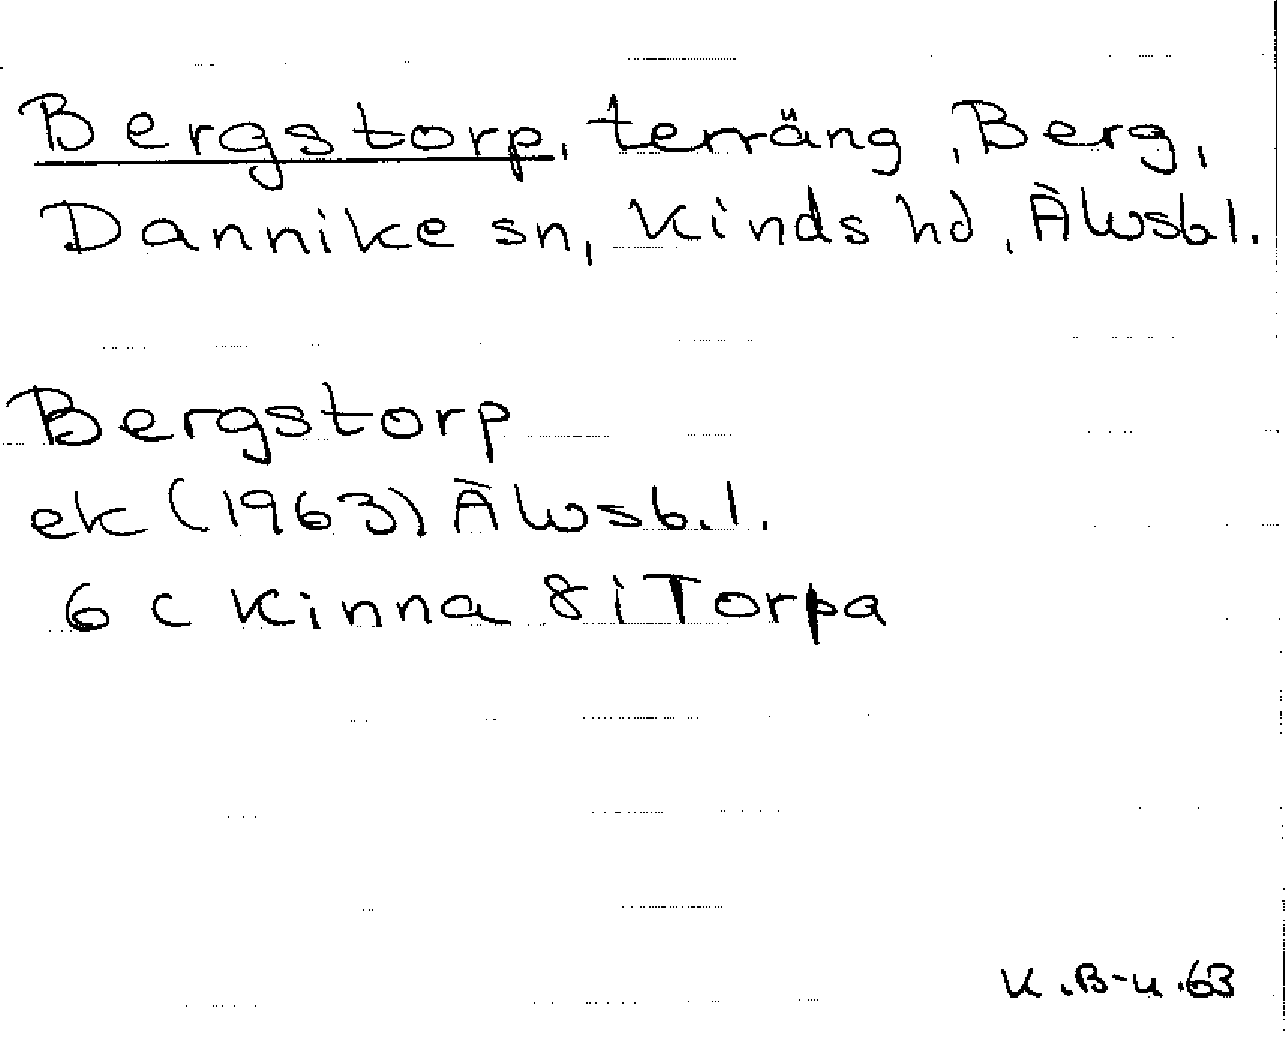 Bergstorp, terräng, Berg,
Dannike sn, Kinds hd, Älvsb l.
Bergstorp
ek (1963) Älvsb. l.
6 C Kinna 8 i Torpa
K.B-u.63